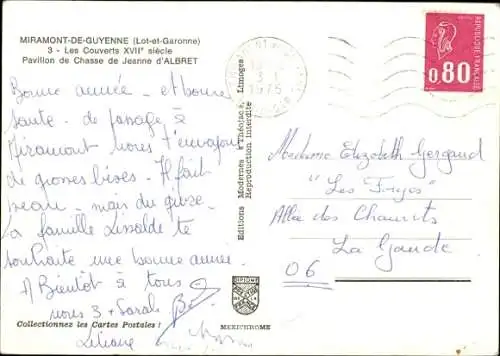 MIRAMONT-DE-GUYENNE (Lot-et-Garonne)
3 - Les Couverts XVIIe siècle
Pavillon de Chasse de Jeanne d'ALBRET
Bonne année - et bonne
santé - de passage à
Miramont nous t'envoyons
de grosses bises - Il fait
beau - mais du givre.
La famille te
souhaite une bonne année.
A Bientôt à tous
nous 3 + Sarah
Liliane
Collectionnez les Cartes Postales !
Editions Modernes "Théojac", Limoges
Reproduction Interdite
MEXICHROME
1975
REPUBLIQUE FRANCAISE
0,80
Madame Elizabeth
"Les
Allée des
La Gaude
06